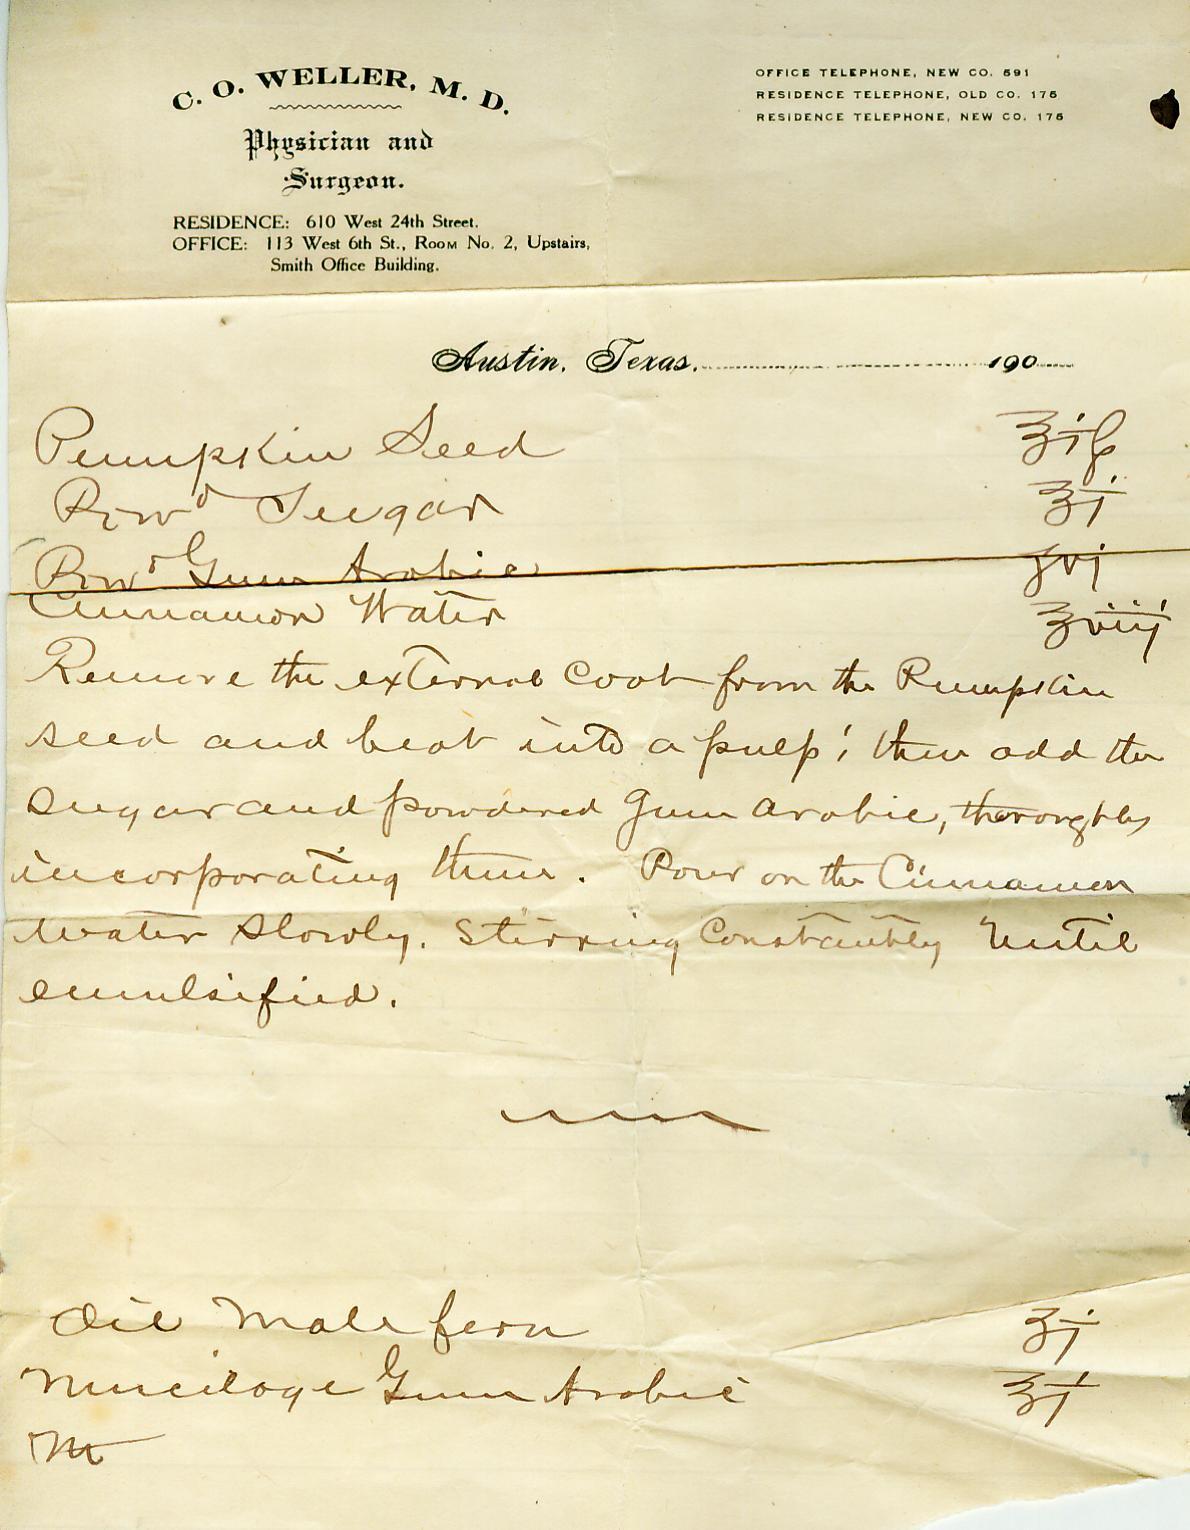 C. O. WELLER, M. D.
Physician and
Surgeon.
RESIDENCE: 610 West 24th Street.
OFFICE: 113 West 6th St., Room No. 2, Upstairs,
Smith Office Building.
OFFICE TELEPHONE, NEW CO. 591
RESIDENCE TELEPHONE, OLD CO. 175
RESIDENCE TELEPHONE, NEW CO. 175
Austin, Texas. 190
Pumpkin Seed ℥iß
Powd Sugar ℥j
Powd Gum Arabic ʒvj
Cinnamon Water ℥viij
Remove the external coat from the Pumpkin
seed and beat into a pulp; then add the
sugar and powdered Gum Arabic, thoroughly
incorporating them. Pour on the Cinnamon
Water slowly. Stirring Constantly Until
emulsified.
Oil Male fern ʒj
Mucilage Gum Arabic ℥j
M